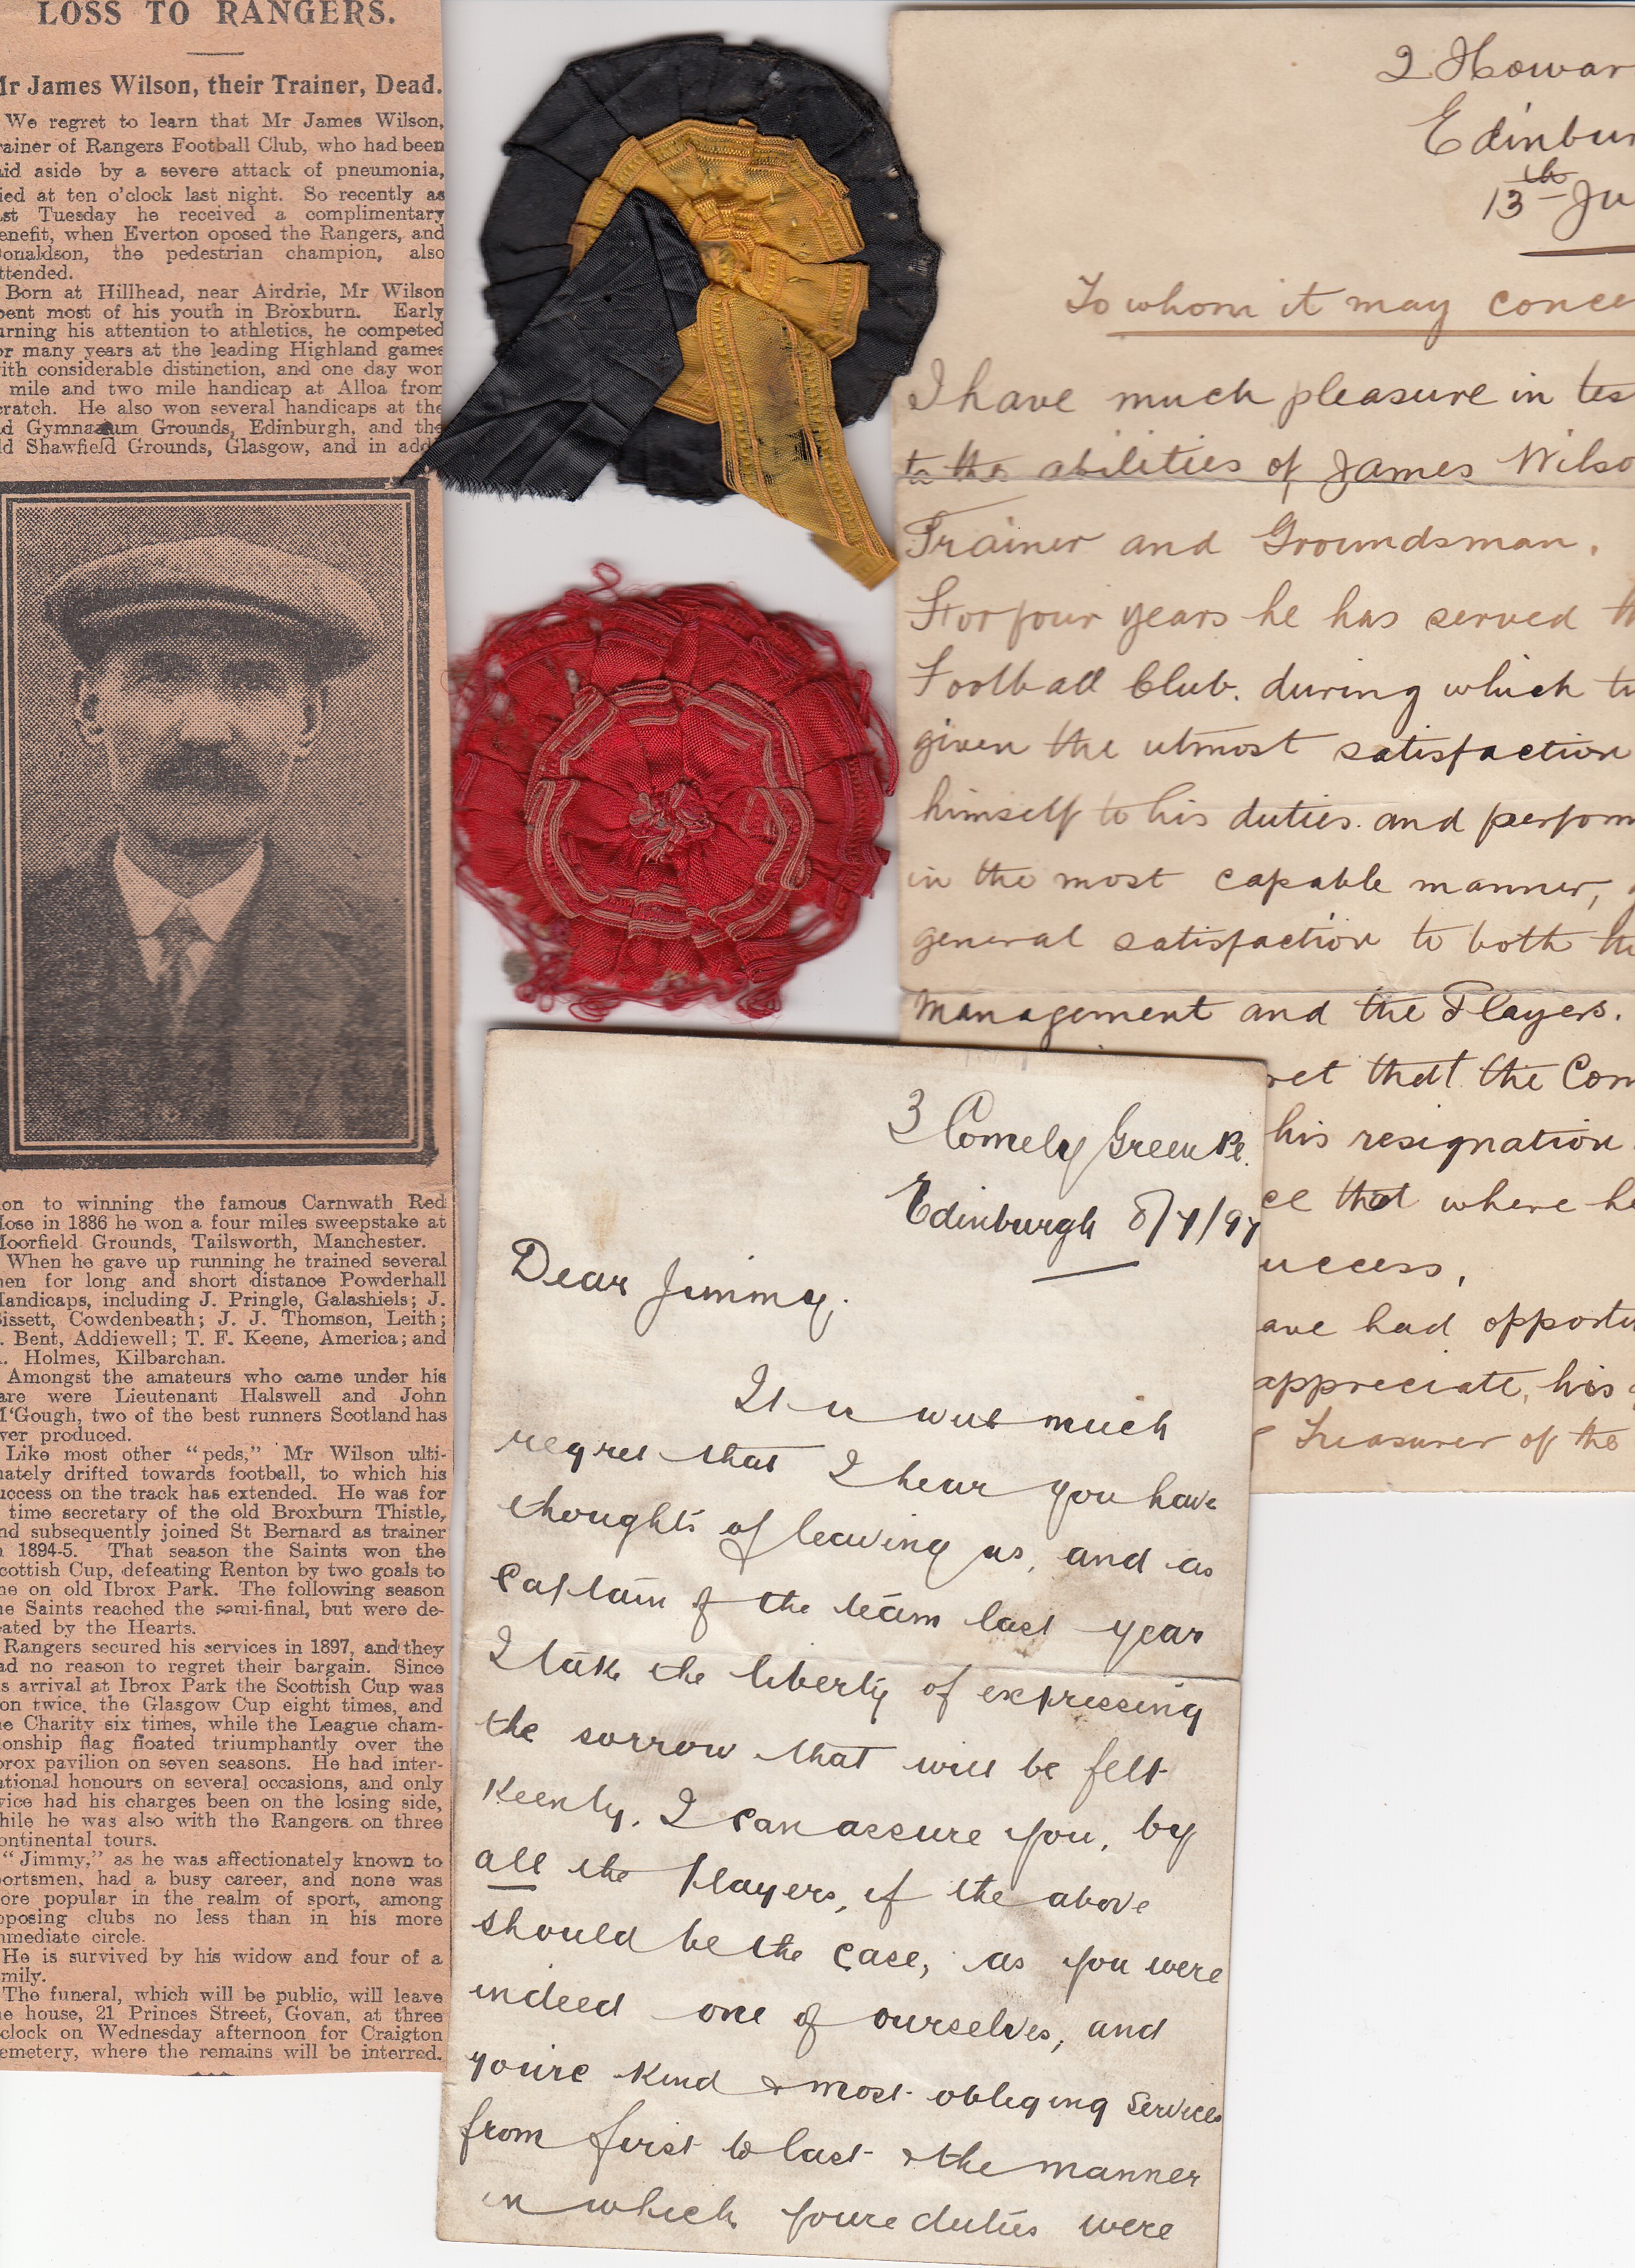 LOSS TO RANGERS.
Mr James Wilson, their Trainer, Dead.
We regret to learn that Mr James Wilson,
rainer of Rangers Football Club, who had been
aid aside by a severe attack of pneumonia,
ied at ten o'clock last night. So recently as
st Tuesday he received a complimentary
enefit, when Everton oposed the Rangers, and
onaldson, the pedestrian champion, also
ttended.
Born at Hillhead, near Airdrie, Mr Wilson
pent most of his youth in Broxburn. Early
urning his attention to athletics, he competed
or many years at the leading Highland games
ith considerable distinction, and one day won
mile and two mile handicap at Alloa from
cratch. He also won several handicaps at the
ld Gymnasium Grounds, Edinburgh, and the
ld Shawfield Grounds, Glasgow, and in add
ion to winning the famous Carnwath Red
Hose in 1886 he won a four miles sweepstake at
Moorfield Grounds, Tailsworth, Manchester.
When he gave up running he trained several
men for long and short distance Powderhall
Handicaps, including J. Pringle, Galashiels; J.
Bissett, Cowdenbeath; J. J. Thomson, Leith;
. Bent, Addiewell; T. F. Keene, America; and
. Holmes, Kilbarchan.
Amongst the amateurs who came under his
are were Lieutenant Halswell and John
M'Gough, two of the best runners Scotland has
ver produced.
Like most other "peds," Mr Wilson ulti-
mately drifted towards football, to which his
uccess on the track has extended. He was for
time secretary of the old Broxburn Thistle,
nd subsequently joined St Bernard as trainer
n 1894-5. That season the Saints won the
cottish Cup, defeating Renton by two goals to
ne on old Ibrox Park. The following season
he Saints reached the semi-final, but were de-
eated by the Hearts.
Rangers secured his services in 1897, and they
ad no reason to regret their bargain. Since
is arrival at Ibrox Park the Scottish Cup was
on twice, the Glasgow Cup eight times, and
he Charity six times, while the League cham-
ionship flag floated triumphantly over the
brox pavilion on seven seasons. He had inter-
ational honours on several occasions, and only
wice had his charges been on the losing side,
hile he was also with the Rangers on three
ontinental tours.
"Jimmy," as he was affectionately known to
portsmen, had a busy career, and none was
ore popular in the realm of sport, among
pposing clubs no less than in his more
mmediate circle.
He is survived by his widow and four of a
mily.
The funeral, which will be public, will leave
he house, 21 Princes Street, Govan, at three
'clock on Wednesday afternoon for Craigton
emetery, where the remains will be interred.
2 Howar
Edinbur
13th Ju
To whom it may conce
I have much pleasure in tes
to the abilities of James Wilso
Trainer and Groundsman.
For four years he has served th
Football Club. during which ti
given the utmost satisfaction
himself to his duties. and perform
in the most capable manner,
general satisfaction to both the
Management and the Players.
ret that the Com
his resignation
ce that where he
uccess.
ave had opportu
appreciate, his
Treasurer of the
3 Comely Green Pl.
Edinburgh 8/7/97
Dear Jimmy;
It is with much
regret that I hear you have
thoughts of leaving us, and as
Captain of the team last year
I take the liberty of expressing
the sorrow that will be felt
Keenly, I can assure you, by
all the players, if the above
should be the case, as you were
indeed one of ourselves, and
youre kind & most obliging services
from first to last & the manner
in which youre duties were